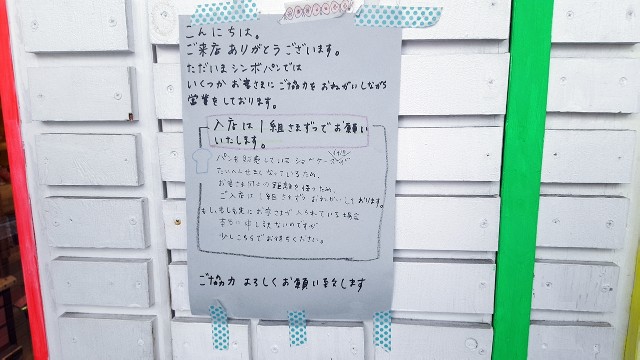 こんにちは。
ご来店 ありがとうございます。
ただいま シンボパンでは
いくつか お客さまに ご協力を おねがいしながら
営業を しております。
入店は 1組さまずつで お願い
いたします。
パンを 販売している
たいへんせまくなっているため、
お客さま同士の距離を保つため、
ご入店は 1組さまずつ おねがいしております。
もし、先に お客さまが 入られている場合
申し訳ないのですが
少しこちらでお待ちください。
ご協力 よろしくお願い致します